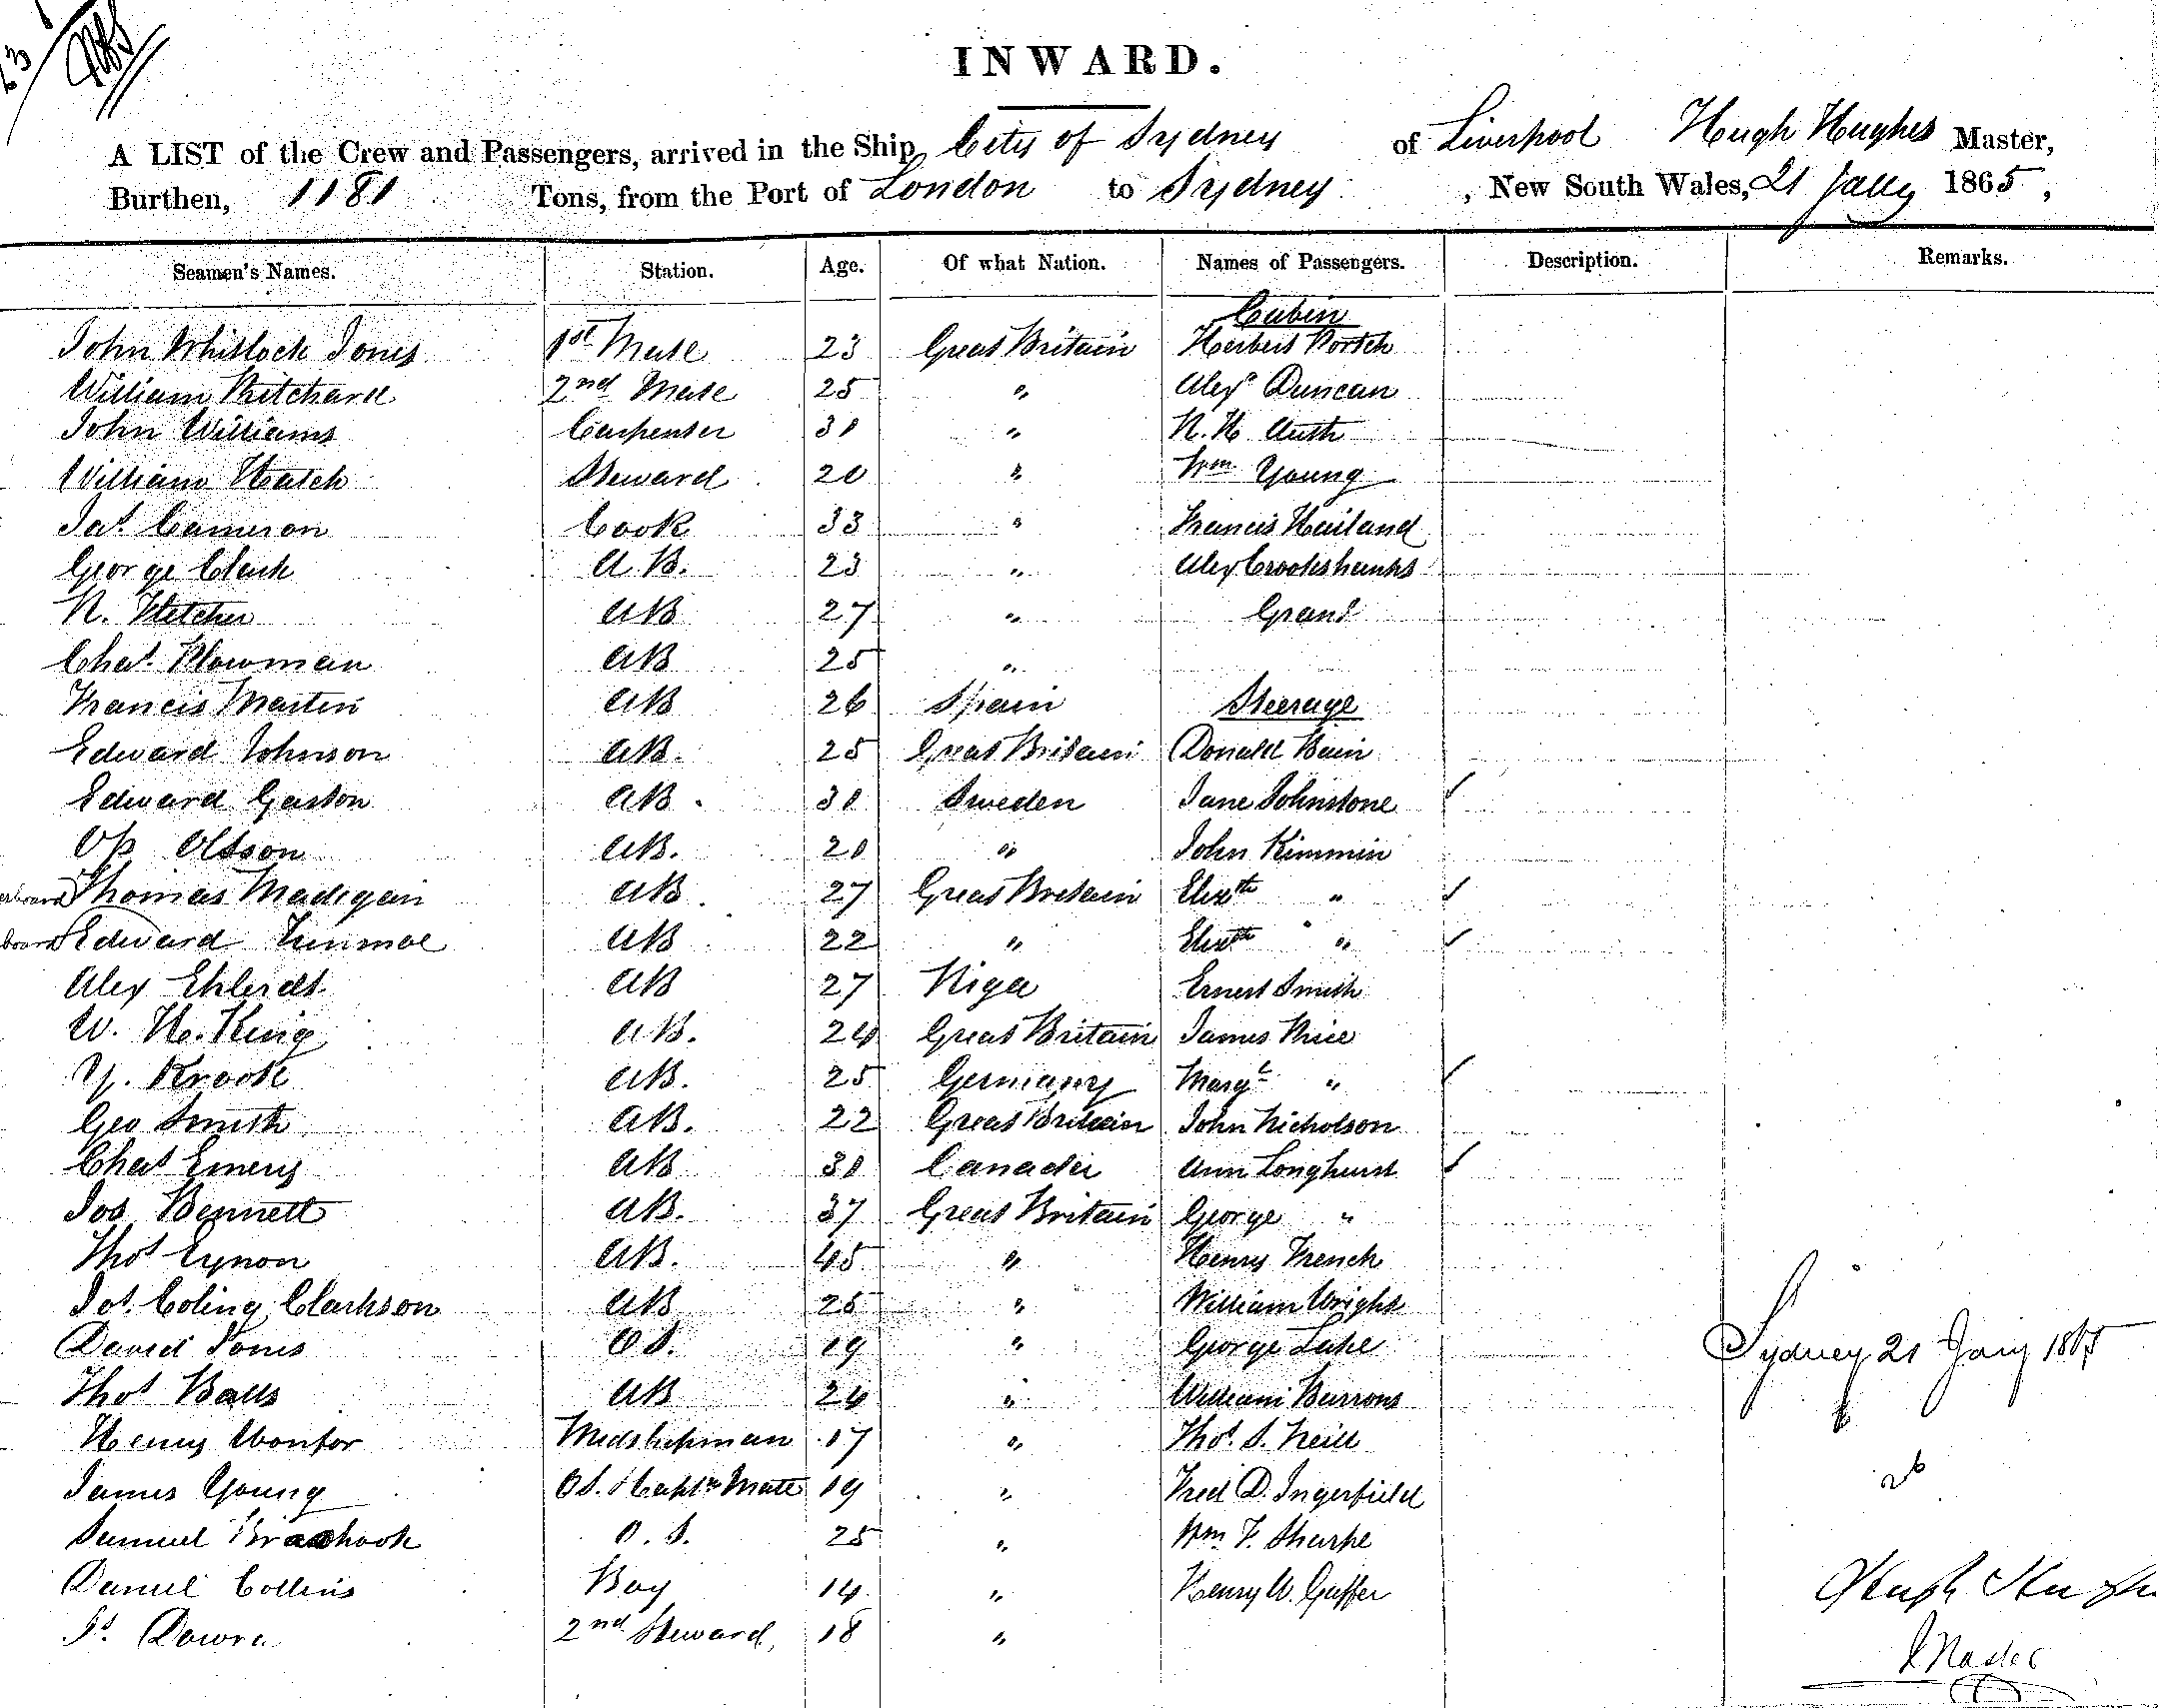 INWARD.
A LIST of the Crew and Passengers, arrived in the Ship City of Sydney of Liverpool Hugh Hughes Master,
Burthen, 1181 Tons, from the Port of London to Sydney, New South Wales, 21 Jany 1865,
Seamen's Names. Station. Age. Of what Nation. Names of Passengers. Description. Remarks.
Cabin
John Whitlock Jones 1st Mate 23 Great Britain Herbert
William Pritchard 2nd Mate 25 " Alexr Duncan
John Williams Carpenter 30 " R. H.
William Hatch Steward 20 " Wm Young
Jas Cameron Cook 33 " Francis
George Clark A.B. 23 " Alex Crookshanks
R. Fletcher AB 27 " Grant
Chas Plowman AB 25 "
Francis Martin AB 26 Spain Steerage
Edward Johnson AB. 25 Great Britain Donald Bain
Edward Gaston AB. 30 Sweden Jane Johnstone
Olsson AB. 20 " John Kimmin
Thomas Madigan AB. 27 Great Britain Elizth "
Edward AB 22 " Elizth "
Alex AB 27 Riga Ernest Smith
W. H. King A.B. 24 Great Britain James Price
Krook AB. 25 Germany Margt "
Geo Smith AB. 22 Great Britain John Nicholson
Chas Emery AB 30 Canada Ann Longhurst
Jos Bennett AB. 37 Great Britain George "
Thos Eynon AB. 45 " Henry French
Jos. Coling Clarkson AB 25 " William Wright
David Jones O S. 19 " George Lake
Sydney 21 Jany 1865
Thos Balls AB 24 " William Burrows
Henry Wonfor Midshipman 17 " Thos. S. Neill
James Young O S. Mate 19 " Fred D. Ingerfield
Samuel O. S. 25 " Wm F. Sharpe
Daniel Collins Boy 14 " Henry W. Gaffer
Hugh Hughes
2nd Steward, 18 "
Master